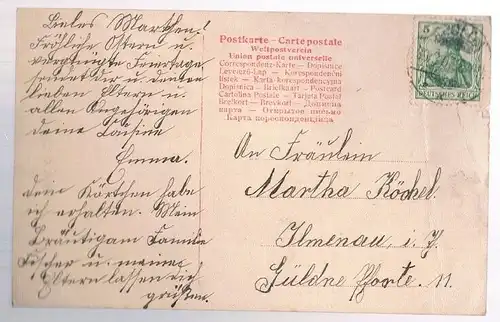 Liebes Marthchen!
Fröhliche Ostern u.
vergnügte Feiertage
sendet dir u. deinen
lieben Eltern u.
allen Angehörigen
deine Cousine
Emma.
dein Kärtchen habe
ich erhalten. Mein
Bräutigam Familie
Fischer u. meine
Eltern lassen dich
grüßen.
Postkarte – Carte postale
Weltpostverein
Union postale universelle
Correspondenz-Karte — Dopisnice
Levelező-Lap — Korespondenční
lístek — Karta korespondencyjna
Dopisnica — Briefkaart — Postcard
Cartolina Postale — Tarjeta Postal
Brefkort — Brevkort — Дописница
карта — Открытое письмо
Карта корреспонденциjна
5
DEUTSCHES REICH
An Fräulein
Martha Köchel.
Ilmenau i. T.
Güldne Pforte. 11.